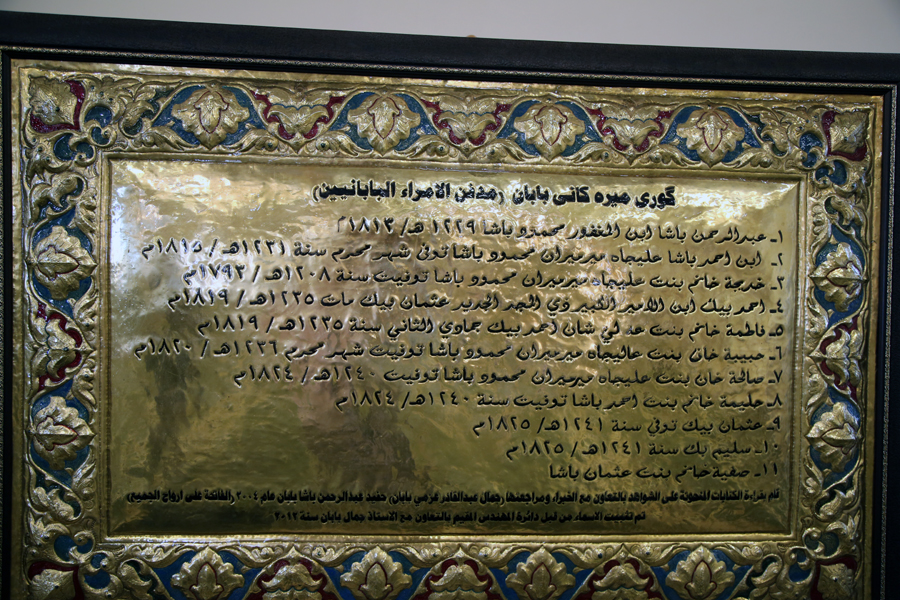 گوری میره کانی بابان (مدفن الامراء البابانيين)
١ـ عبدالرحمن باشا ابن المغفور محمود باشا ١٢٢٩ هـ/ ١٨١٣م
٢ـ ابن احمد باشا عليجاه ميرميران محمود باشا توفي شهر محرم سنة ١٢٣١هـ/ ١٨١٥م
٣ـ خدجة خانم بنت عليجاه ميرميران محمود باشا توفيت سنة ١٢٠٨هـ/ ١٧٩٣م
٤ـ احمد بيك ابن الامير الكبير ذي المجد الجديد عثمان بيك مات ١٢٣٥هـ/ ١٨١٩م
٥ـ فاطمة خانم بنت عد لي شان احمد بيك جمادي الثاني سنة ١٢٣٥هـ/ ١٨١٩م
٦ـ حبيبة خان بنت عاليجاه ميرميران محمود باشا توفيت شهر محرم ١٢٣٦هـ/ ١٨٢٠م
٧ـ صالحة خان بنت عليجاه ميرميران محمود باشا توفيت ١٢٤٠هـ/ ١٨٢٤م
٨ـ حليمة خانم بنت احمد باشا توفيت سنة ١٢٤٠هـ/ ١٨٢٤م
٩ـ عثمان بيك توفي سنة ١٢٤١هـ/ ١٨٢٥م
١٠ـ سليم بك سنة ١٢٤١هـ/ ١٨٢٥م
١١ـ صفية خانم بنت عثمان باشا
قام بقراءة الكتابات المنحوتة على الشواهد بالتعاون مع الخبراء ومراجعتها (جمال عبدالقادر عزمي بابان) حفيد عبدالرحمن باشا بابان عام ٢٠٠٤ (الفاتحة على ارواح الجميع)
تم تثبيت الاسماء من قبل دائرة المهندس المقيم بالتعاون مع الاستاذ جمال بابان سنة ٢٠١٢